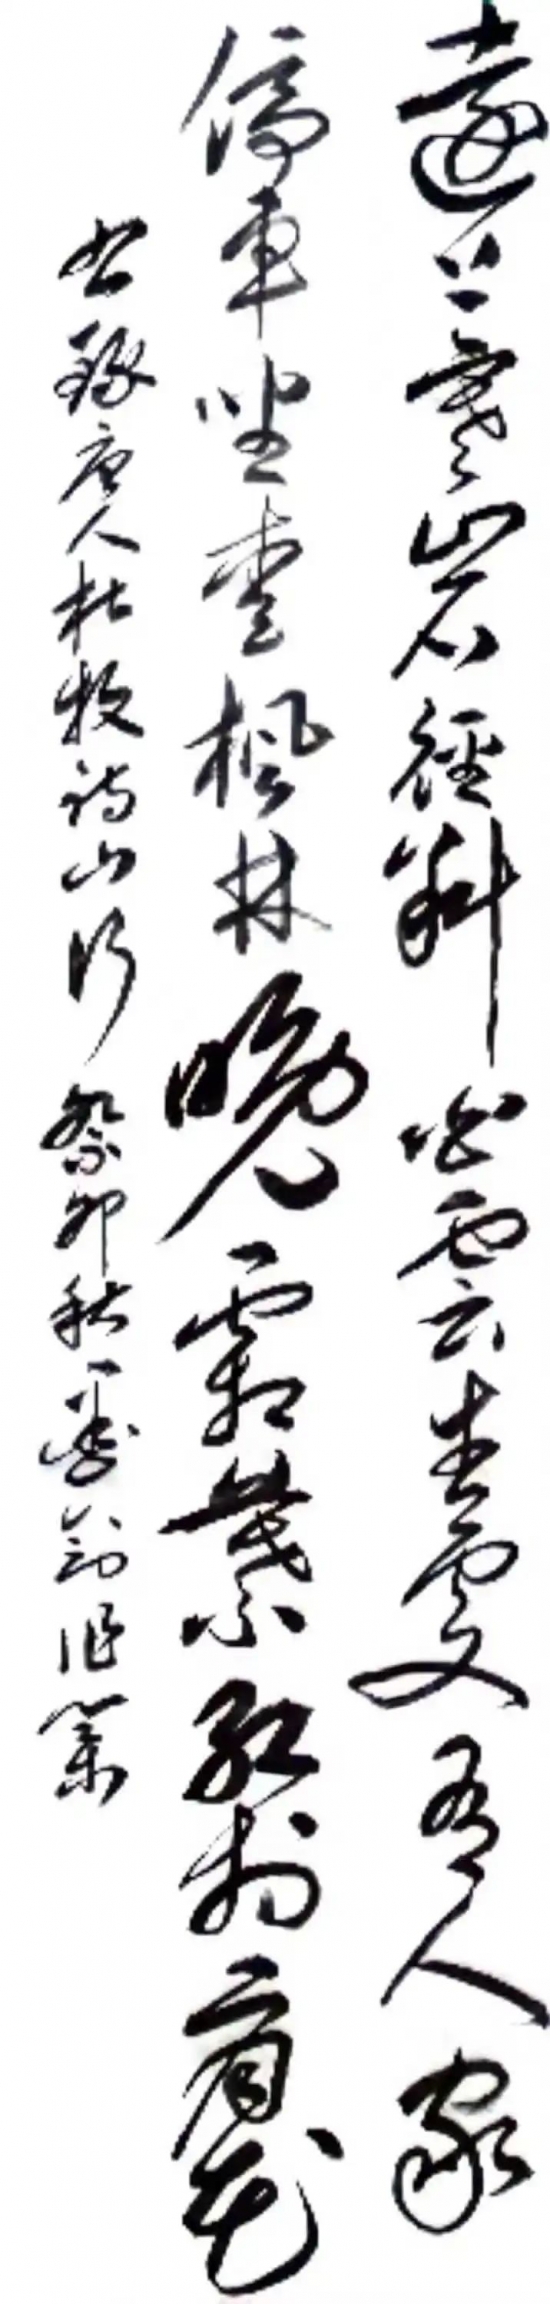 遠上寒山石徑斜白雲生處有人家
停車坐愛楓林晚霜葉紅於二月花
唐人杜牧詩山行癸卯秋